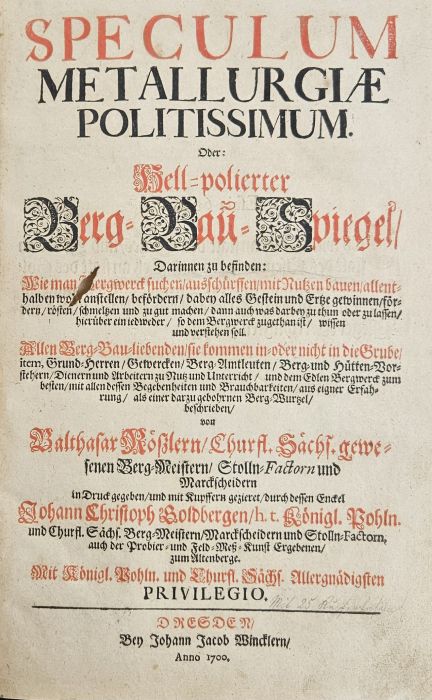 SPECULUM
METALLURGIÆ
POLITISSIMUM.
Oder:
Hell-polierter
Berg-Bau-Spiegel/
Darinnen zu befinden:
Wie man Bergwerck suchen/ausschürffen/mit Nutzen bauen/allent-
halben wol anstellen/befördern/dabey alles Gestein und Ertze gewinnen/för-
dern/rösten/schmeltzen und zu gut machen/dann auch was darbey zu thun oder zu lassen/
hierüber ein iedweder/so dem Bergwerck zugethan ist/wissen
und verstehen soll.
Allen Berg-Bau-liebenden/sie kommen in- oder nicht in die Grube/
item, Grund-Herren/Gewercken/Berg-Amtleuten/Berg- und Hütten-Vor-
stehern/Dienern und Arbeitern zu Nutz und Unterricht/und dem Edlen Bergwerck zum
besten/mit allen dessen Begebenheiten und Brauchbarkeiten/aus eigner Erfah-
rung/als einer darzu gebohrnen Berg-Wurtzel/
beschrieben/
von
Balthasar Rößlern/Churfl. Sächs. gewe-
senen Berg-Meistern/Stolln-Factorn und
Marckscheidern
in Druck gegeben/und mit Kupffern gezieret/durch dessen Enckel
Johann Christoph Goldbergen/h. t. Königl. Pohln.
und Churfl. Sächs. Berg-Meistern/Marckscheidern und Stolln-Factorn,
auch der Probier- und Feld-Meß-Kunst Ergebenen/
zum Altenberge.
Mit Königl. Pohln. und Churfl. Sächs. Allergnädigsten
PRIVILEGIO.
Mit 25
DRESDEN/
Bey Johann Jacob Wincklern/
Anno 1700.